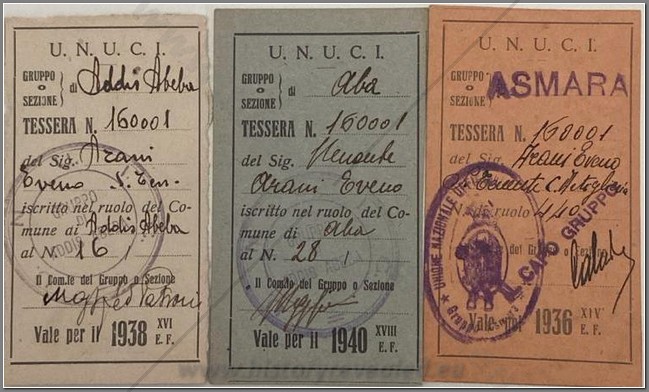 U. N. U. C. I.
GRUPPO
o
SEZIONE
di Addis Abeba
TESSERA N. 160001
del Sig. Arani
Eveno S. Ten.
iscritto nel ruolo del Co-
mune di Addis Abeba
al N. 16
Il Com.te del Gruppo o Sezione
Vale per il 1938 XVI
E. F.
U. N. U. C. I.
GRUPPO
o
SEZIONE
di Aba
TESSERA N. 160001
del Sig.
Arani Eveno
iscritto nel ruolo del Co-
mune di Aba
al N. 28
Il Com.te del Gruppo o Sezione
Vale per il 1940 XVIII
E. F.
U. N. U. C. I.
GRUPPO
o
SEZIONE
ASMARA
TESSERA N. 160001
del Sig. Arani Eveno
Tenente
N. di ruolo 440
del Gruppo o Sezione
CAPO GRUPPO
UNIONE NAZIONALE
Vale per 1936 XIV
E. F.
www.historyrevealed.eu